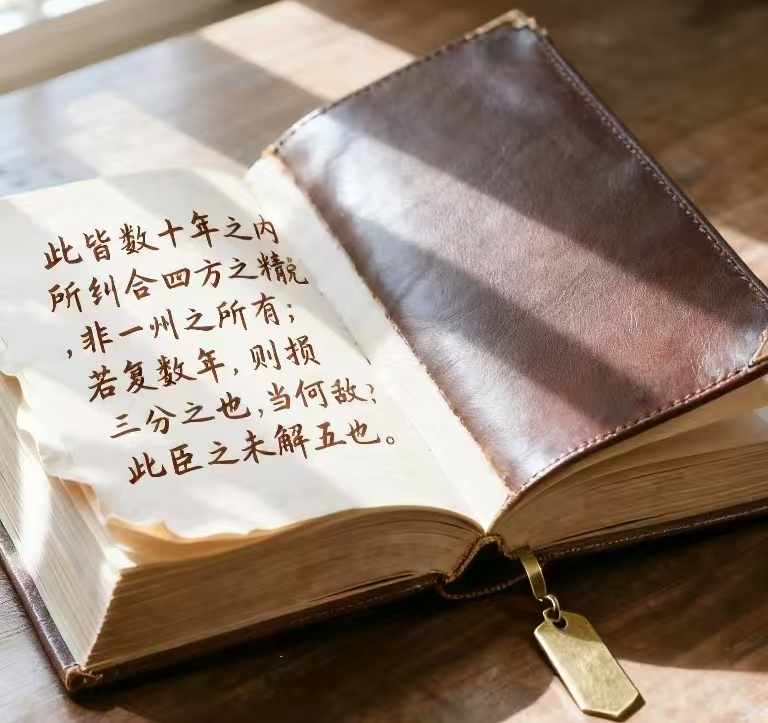 此皆数十年之内
所纠合四方之精锐
,非一州之所有;
若复数年,则损
三分之也,当何敌?
此臣之未解五也。